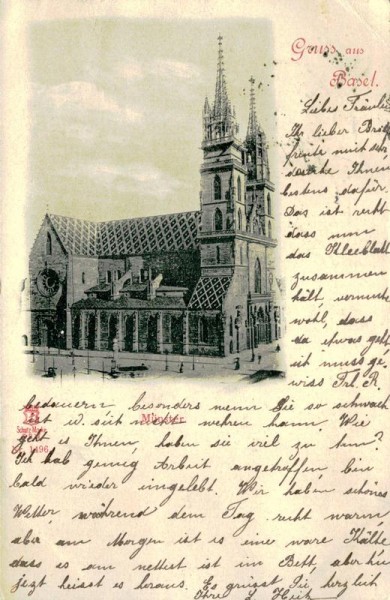 Gruss aus
Basel.
Liebes Fräulei
Ihr lieber Brief
freute mich sehr
danke Ihnen
bestens dafür.
Das ist recht
dass man
das Kleeblatt
zusammen
hält, vermut
wohl, dass
da etwas geht
sie muss ge-
wiss Frl. R.
bedauern besonders wenn Sie so schwach
ist u. sich nicht wehren kann. Wie
geht es Ihnen, haben sie viel zu tun?
Ich hab genug Arbeit angetroffen bin
bald wieder eingelebt. Wir haben schönes
Wetter, während dem Tag recht warm
aber am Morgen ist es eine ware Kälte
dass es am nettest ist im Bett, aber hie
jezt heisst es heraus. Es grüsst Sie herzlich
Ihre
Münster
Schutz-Marke
1496